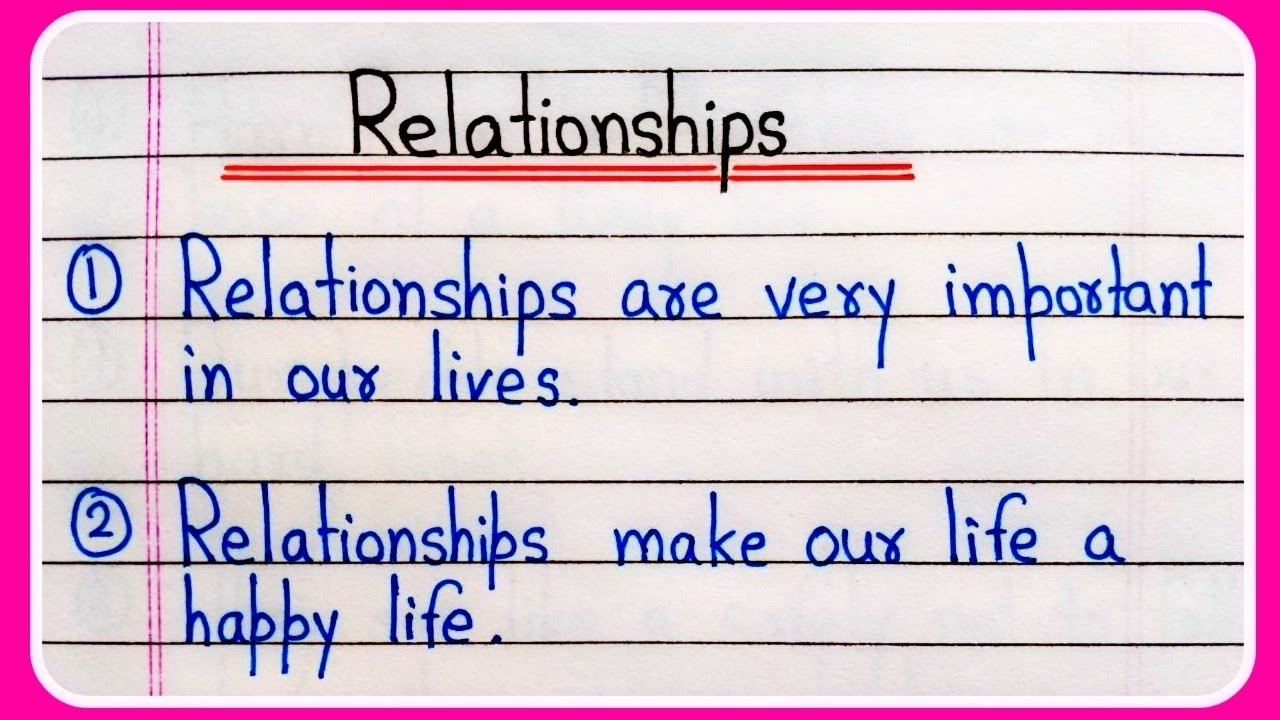 Relationships
① Relationships are very important
in our lives.
② Relationships make our life a
happy life.